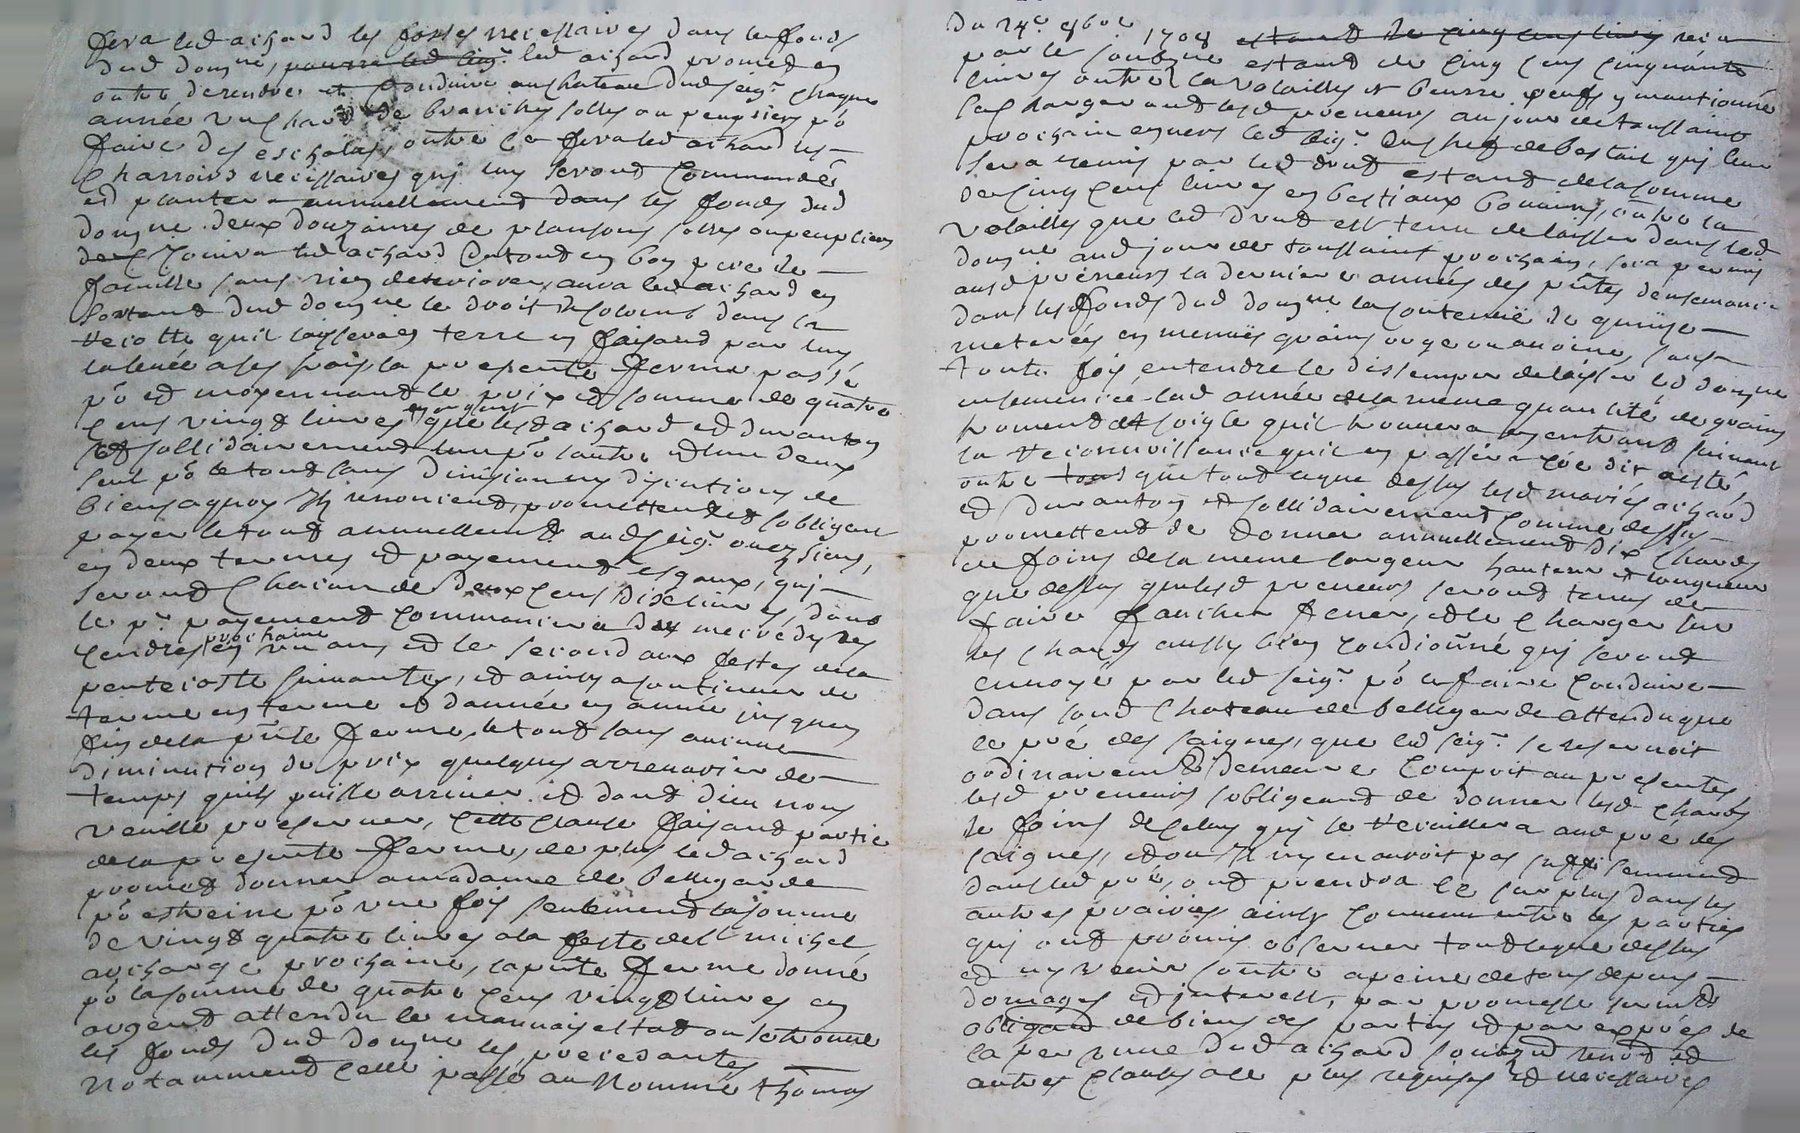 fera led achard les fosses necessaires dans les fonds
dud domne, pourra led seigr. led achard promed en
outre de rendre et conduire au chateau dud seigr. chaque
année un chard de branches solles ou peupliers po
faire des escholas, outre ce fera led achard les
charroirs necessaires qui luy seront commandés
et plantera annuellement dans les fonds dud
domgne deux douzaines de plansons solles ou peupliers
de jouira led achard du tout en bon pere de
famille sans rien deteriorer, aura led achard en
sortant dud domgne le droit de colomb dans la
recolte qu'il laissera en terre en faisand par luy
la levée a ses frais la presente ferme passé
po et moyennand le prix et somme de quatre
cens vingt livres en argent que lesd achard et duranton
et sollidairement l'un po l'autre et l'un deux
seul po le tout sans division ny discutions de
biens a quoy ils renoncent, promettent et s'obligent
payer le tout annuellement aud seigr. ou ez siens,
en deux termes et payement esgaux, qui
seront chacun de deux cens dix livres, dont
le pr. payement commancera dez mercredy des
cendres prochaine en un ans et le second aux festes de la
pentecoste suivantes, et ainsy a continuer de
terme en terme et d'année en année jusques
fin de la pnte ferme, le tout sans aucune
diminution du prix quelques arrenarier de
temps quils puille arriver et dont dieu nous
veuille preserver, cette clause faisand partie
de la presente ferme, de plus led achard
promet donner a madame de bellegarde
po estreine po une fois seulement la somme
de vingt quatre livres a la feste de st michel
archange prochaine, la pnte ferme donné
po la somme de quatre cens vingt livres en
argent attendu le mauvais estat ou se trouve
les fonds dud domgne les precedantes
notamment celle passé au nommé thomas
du 24e 8bre 1708 estant de cinq cens livres receu
par le soubzne estant de cinq cens cinquante
livres outre la volailles et beurre oeufs y mantionné
se chargerandt lesd preneurs au jour de toussaint
prochain envers led seigr. du chef de bestail qui leur
sera remis par led drut estant de la somme
de cinq cens livres en bestiaux bovains, outre la
volailles que led drut est tenu de laisser dans led
domgne aud jour de toussaint prochain, sera permis
ausd preneurs la derniere années des pntes d'ensemancer
dans les fonds dud domgne la contenue de quinze
meterées en menues grains orge ou avoine, sans
toute fois entendre le dispenser de laisser led domgne
ensemencée lad année de la meme quantité de grains
froment et soigle quil trouvera en entrant suivant
la reconnoissance quil en passera coe dit a esté,
outre tous que tout ce que dessus lesd mariés achard
et duranton et sollidairement comme dessus
promettent de donner annuellement dix chards
de foins de la meme largeur hauteur et longueur
que dessus que lesd preneurs seront tenus de
faire faucher fener, et le charger sur
les chards aussy bien condionné qui seront
envoyé par led seigr. po le faire conduire
dans soud chateau de bellegarde attendu que
le pré des saignes, que led seigr. se reservoit
ordinairement demeure comprit au presentes
lesd preneurs s'obligeant de donner lesd chards
de foins de celuy qui se recuillera aud pré des
saignes, et ou il n'y en auroit pas suffisemment
dans led pré, ont prendra le surplus dans les
autres prairies ainsy convenu entre les parties
qui ont promis observer tout ce que dessus
et n'y venir contre a peine de tous depens
domages et interest, par promesse serment
obligand de biens des parties et par exprés de
la personne dud achard soubzmt renond et
autres clauses a ce plus requises et necessaires